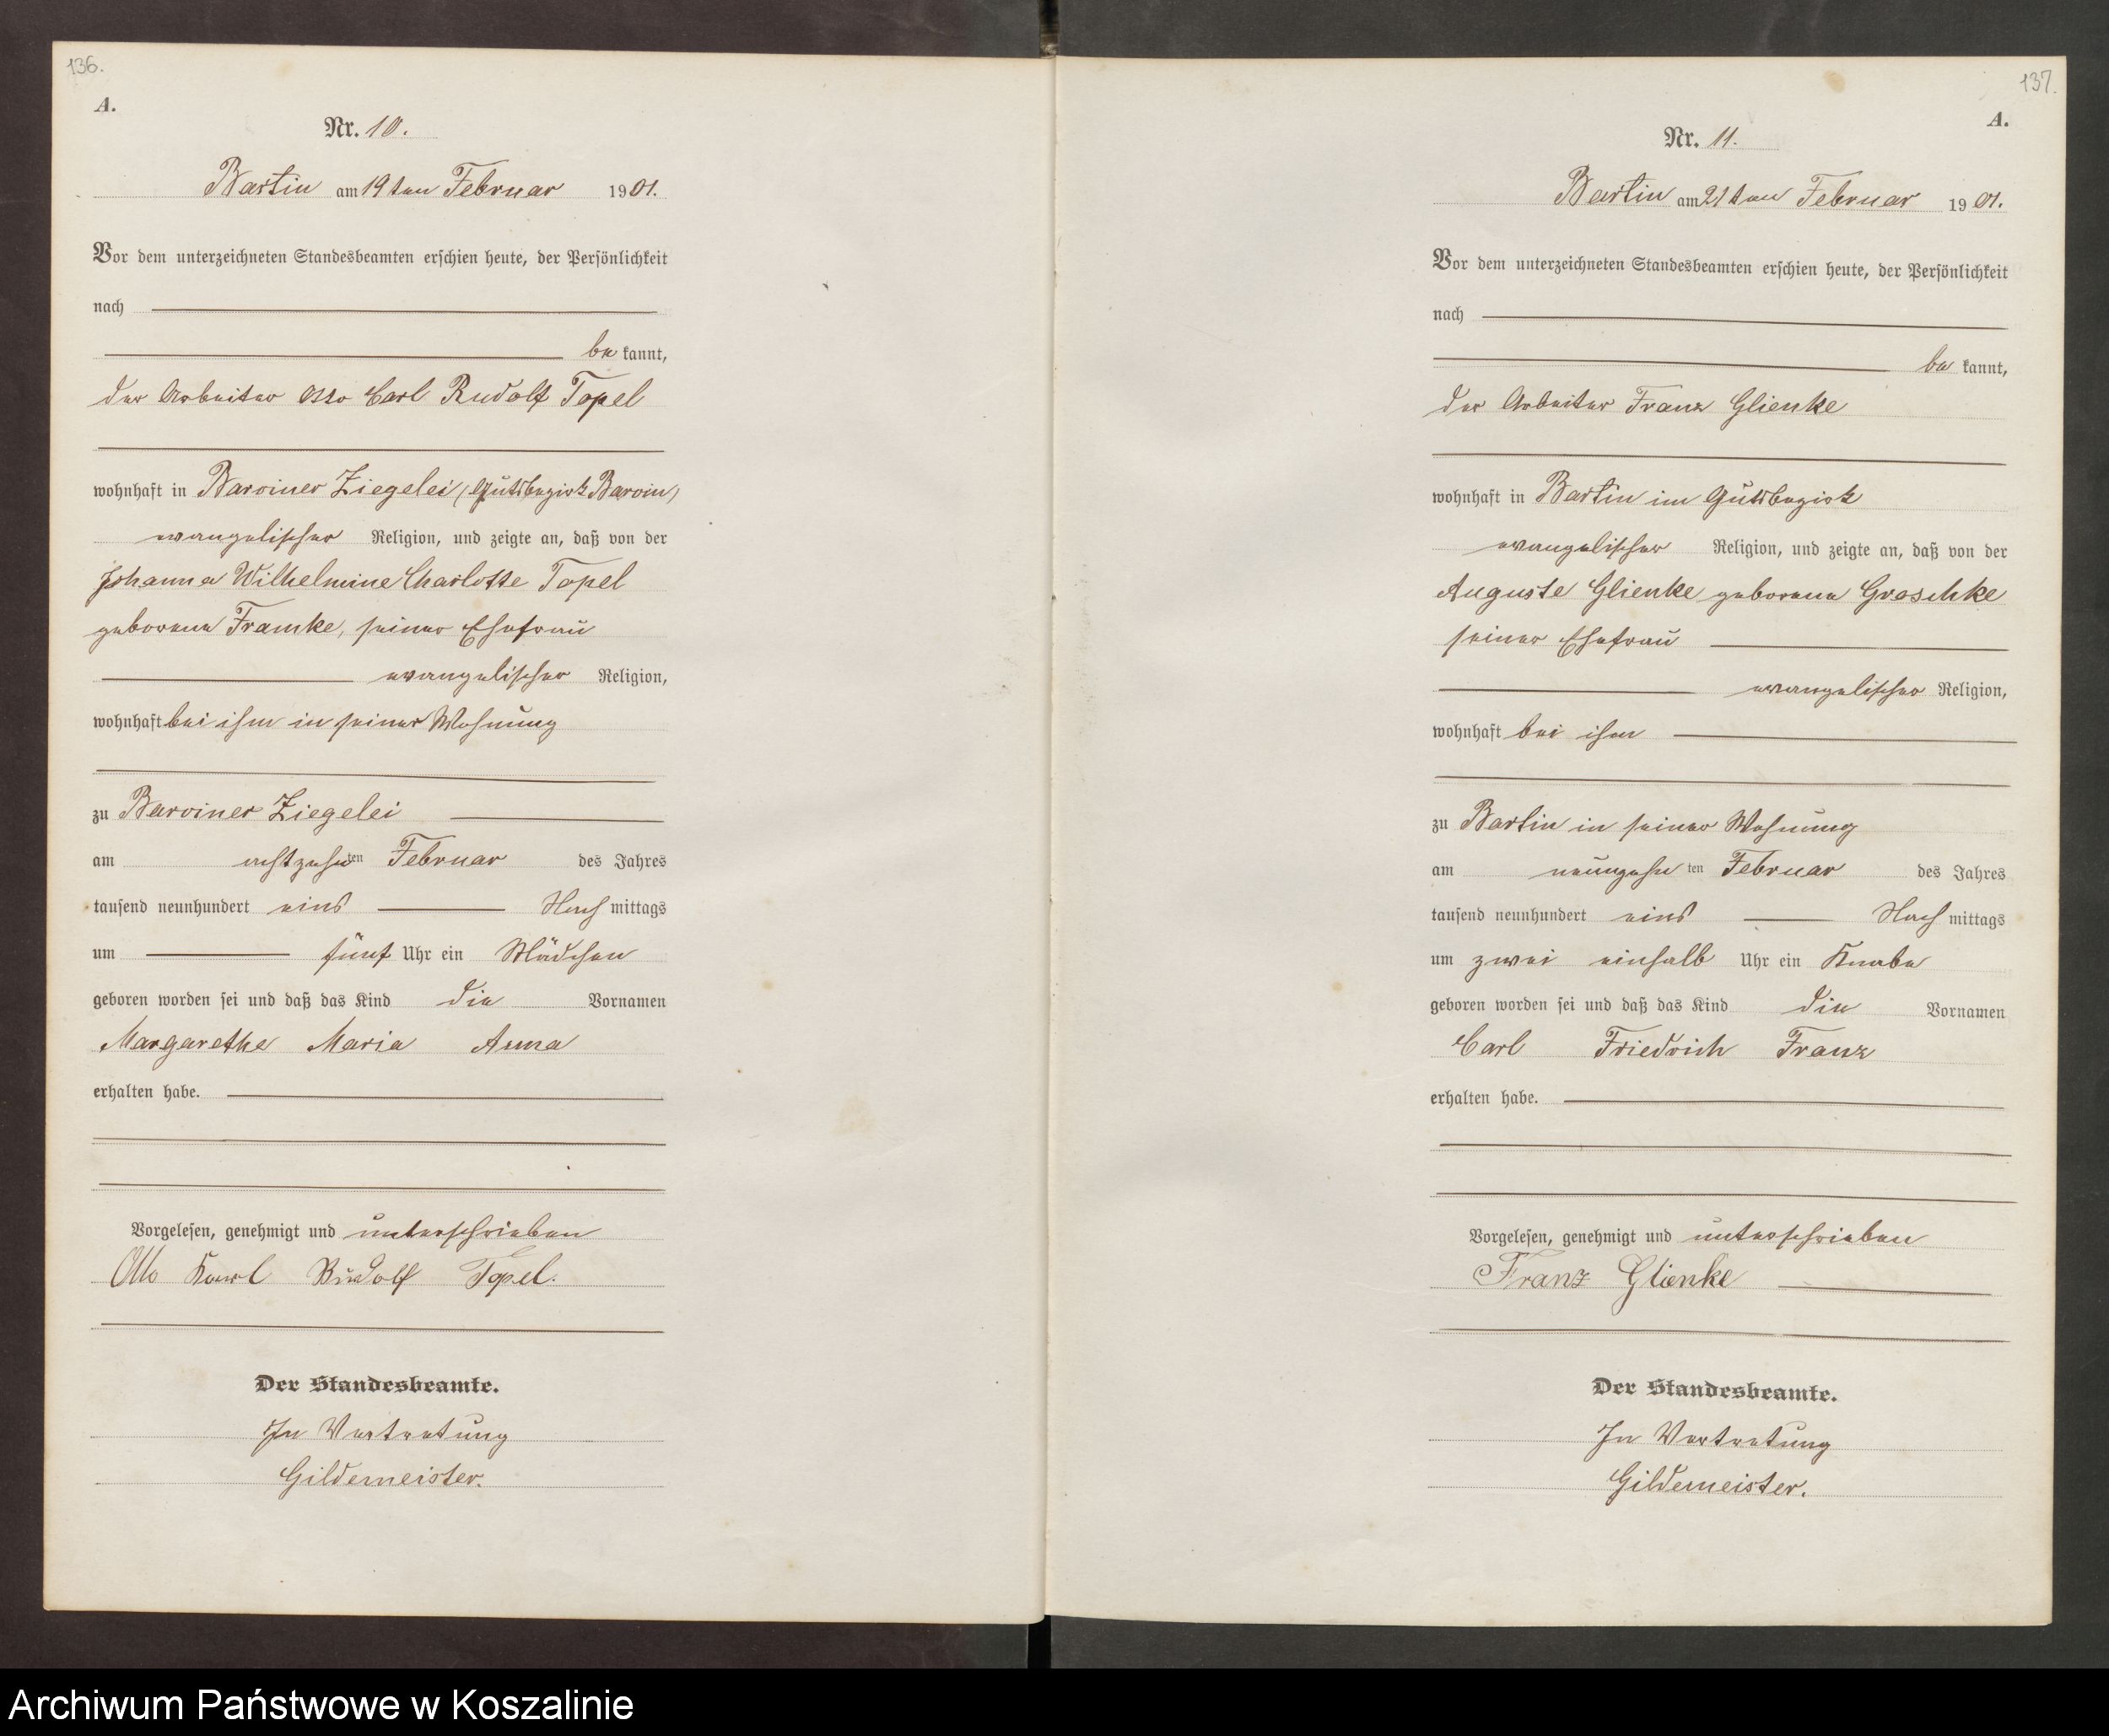 136.
A.
Nr. 10.
Bartin am 19ten Februar 1901.
Vor dem unterzeichneten Standesbeamten erschien heute, der Persönlichkeit
nach
bekannt,
der Arbeiter Otto Carl Rudolf Topel
wohnhaft in Barviner Ziegelei (Gutsbezirk Barvin)
evangelischer Religion, und zeigte an, daß von der
Johanna Wilhelmine Charlotte Topel
geborene Framke, seiner Ehefrau
evangelischer Religion,
wohnhaft bei ihm in seiner Wohnung
zu Barviner Ziegelei
am achtzehnten Februar des Jahres
tausend neunhundert eins Nachmittags
um fünf Uhr ein Mädchen
geboren worden sei und daß das Kind die Vornamen
Margarethe Maria Anna
erhalten habe.
Vorgelesen, genehmigt und unterschrieben
Otto Karl Rudolf Topel.
Der Standesbeamte.
In Vertretung
Gildemeister.
137.
A.
Nr. 11.
Bartin am 21ten Februar 1901.
Vor dem unterzeichneten Standesbeamten erschien heute, der Persönlichkeit
nach
bekannt,
der Arbeiter Franz Glienke
wohnhaft in Bartin im Gutsbezirk
evangelischer Religion, und zeigte an, daß von der
Auguste Glienke geborene Groschke
seiner Ehefrau
evangelischer Religion,
wohnhaft bei ihm
zu Bartin in seiner Wohnung
am neunzehnten Februar des Jahres
tausend neunhundert eins Nachmittags
um zwei einhalb Uhr ein Knabe
geboren worden sei und daß das Kind die Vornamen
Carl Friedrich Franz
erhalten habe.
Vorgelesen, genehmigt und unterschrieben
Franz Glienke
Der Standesbeamte.
In Vertretung
Gildemeister.
Archiwum Państwowe w Koszalinie